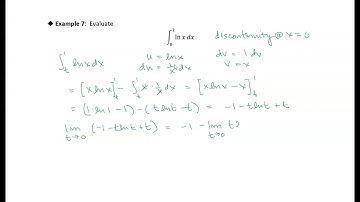 ◆ Example 7: Evaluate
∫₀¹ ln x dx discontinuity @ x = 0
∫ₜ¹ ln x dx u = ln x dv = 1 dv
du = 1/x dx v = x
= [x ln x]ₜ¹ - ∫ₜ¹ x · 1/x dx = [x ln x - x]ₜ¹
= (1 · ln 1 - 1) - (t ln t - t) = -1 - t ln t + t
lim t→0 (-1 - t ln t + t) = -1 - lim t→0 t